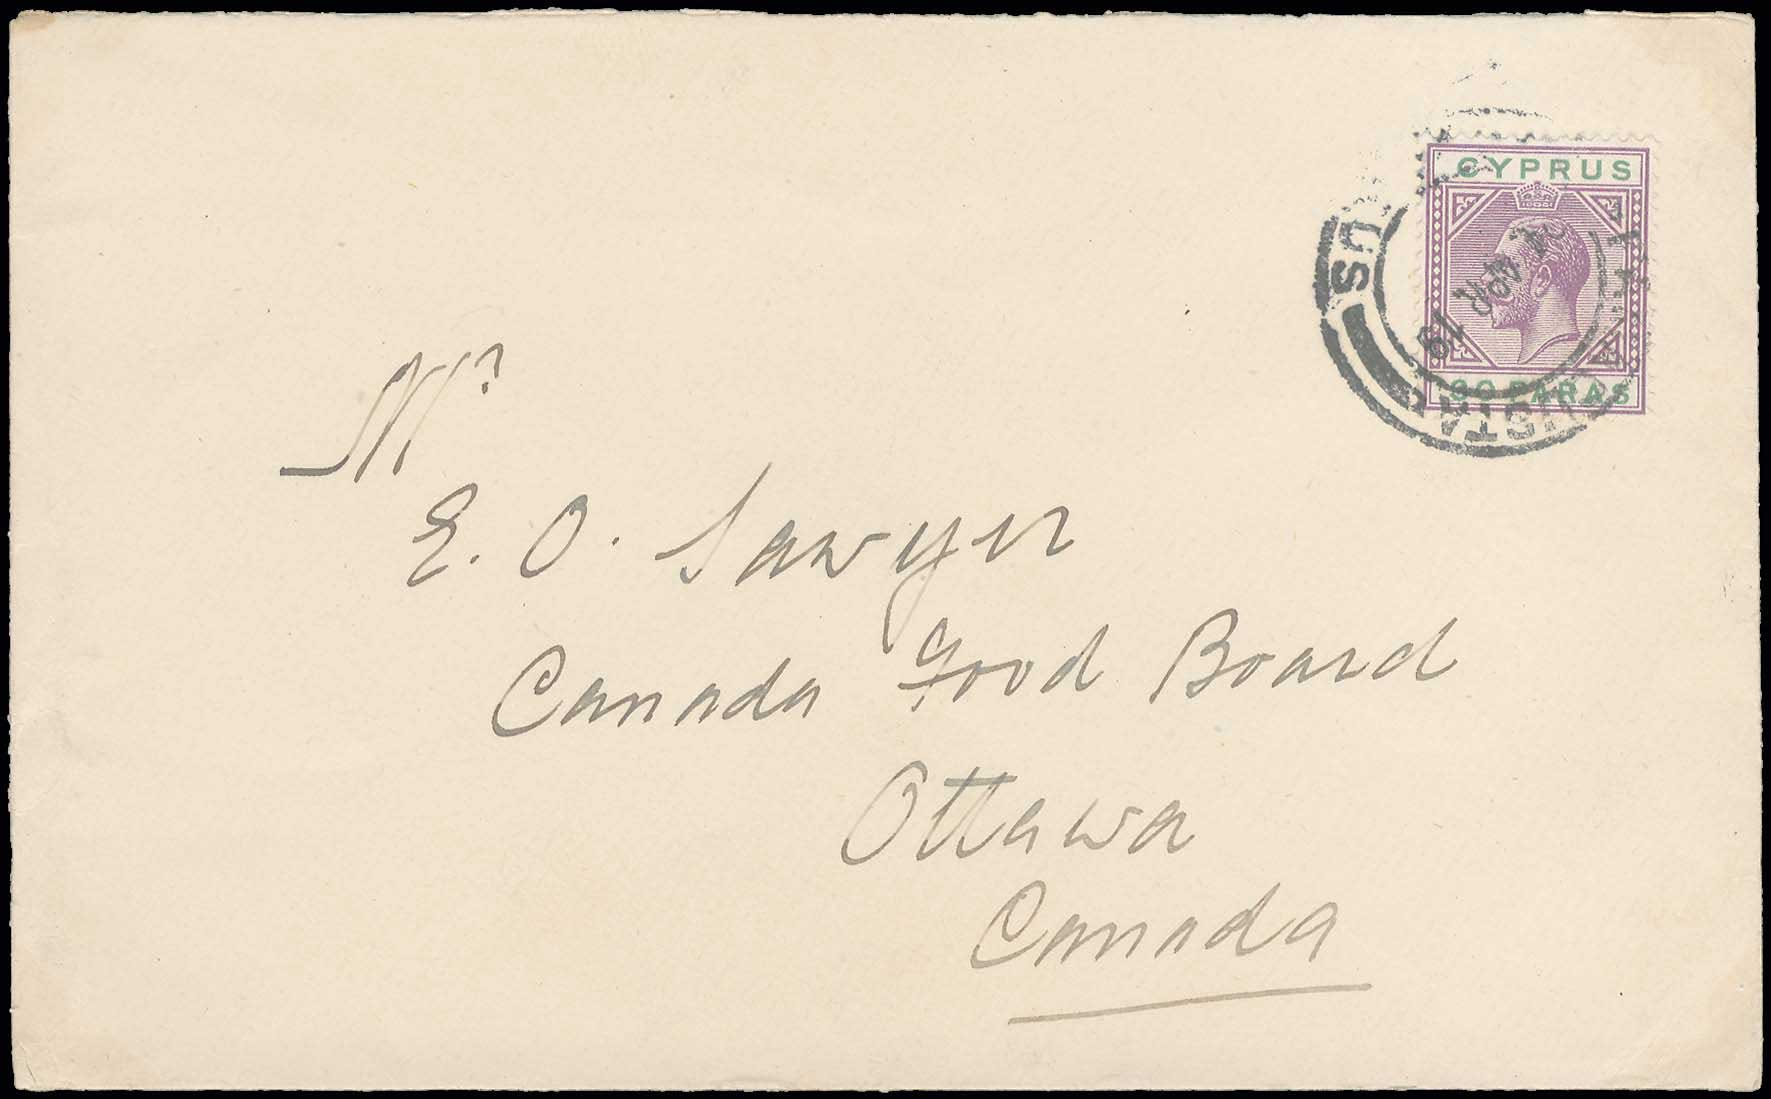 CYPRUS
30 PARAS
24 APR 19
Mr
E. O. Sawyer
Canada Food Board
Ottawa
Canada